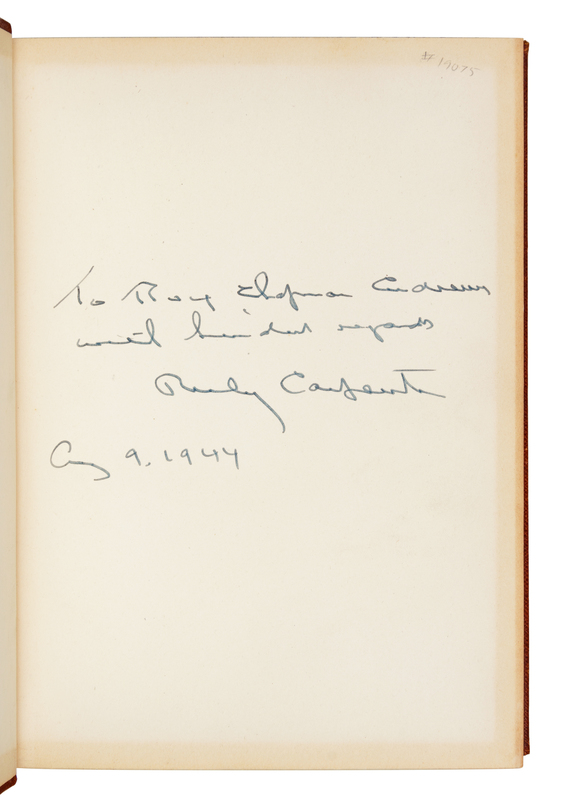 #19075
To Roy Chapman Andrews
with kindest regards
Ruly Carpenter
Aug 9, 1944